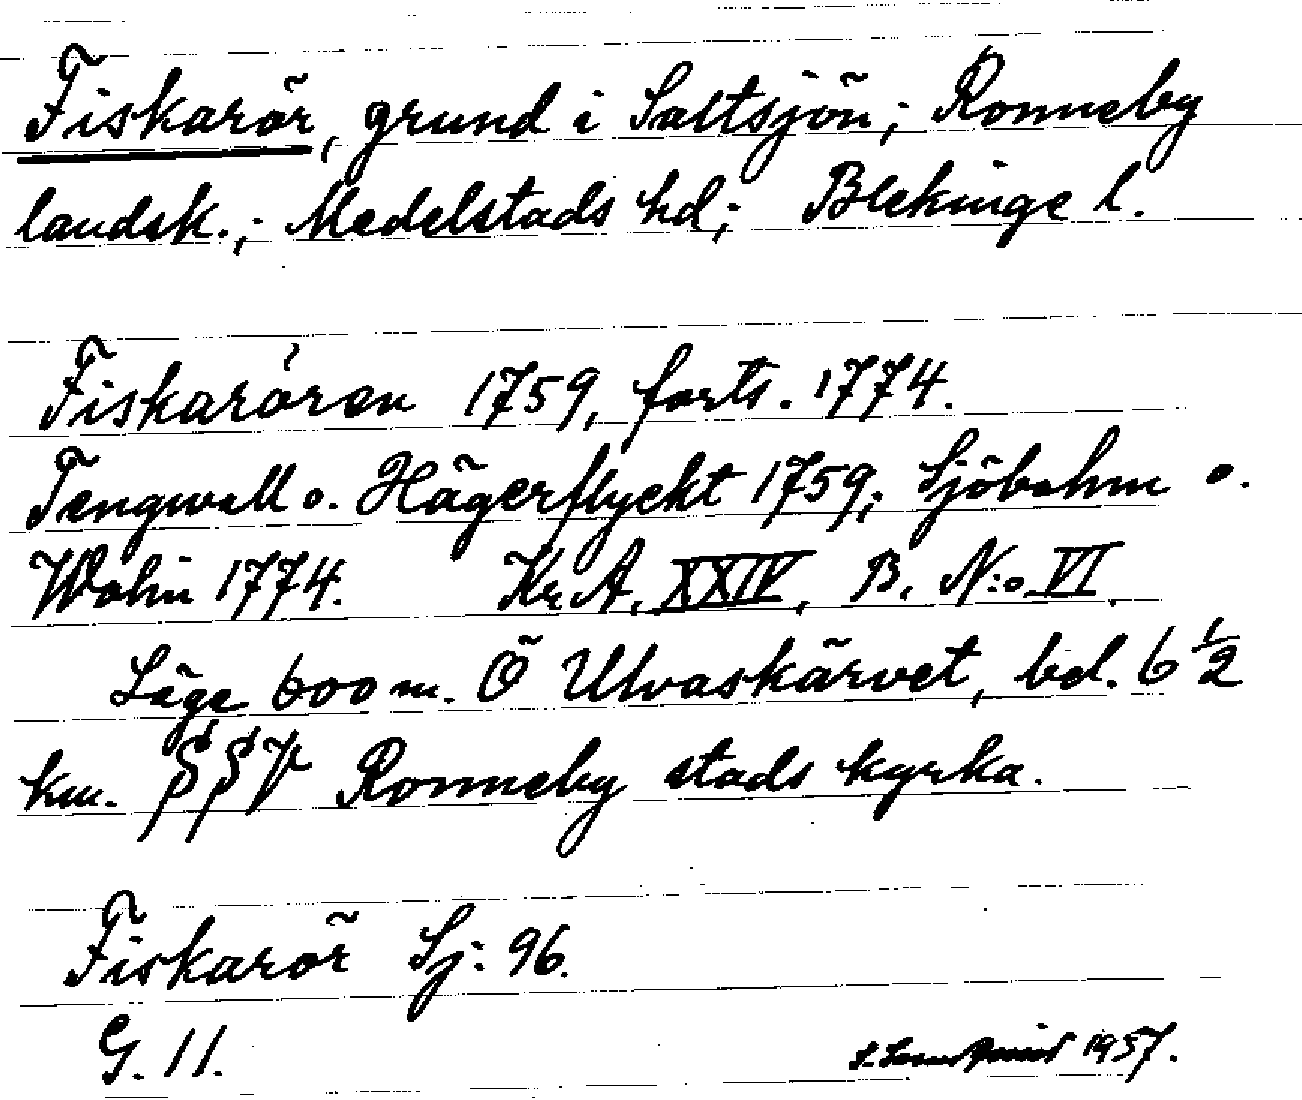 Fiskarör, grund i Saltsjön; Ronneby
landsk.; Medelstads hd; Blekinge l.
Fiskarören 1759, forts. 1774.
Tengwall o. Hägerflycht 1759; Sjöbohm o.
Wahin 1774. Kr. A. XXIV, B. N:o VI.
Läge 600 m. Ö Ulvaskärvet, bel. 6 1/2
km. SSV Ronneby stads kyrka.
Fiskarör Sj: 96.
G. 11. 1957.